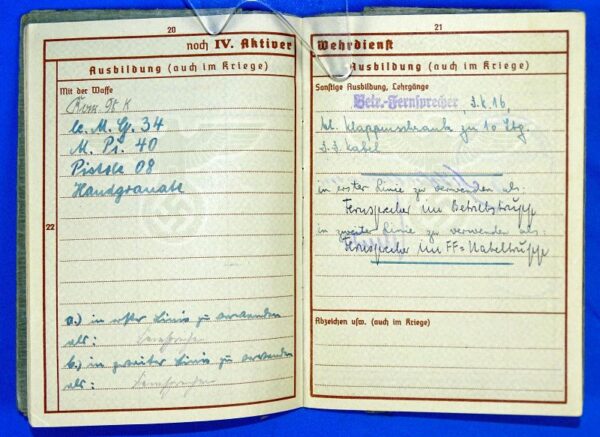 20
noch IV. Aktiver
Ausbildung (auch im Kriege)
Mit der Waffe
98 K
le. M. G. 34
M. Pi. 40
Pistole 08
Handgranate
22
a.) in erster Linie zu verwenden
als: Fernsprecher
b.) in zweiter Linie zu verwenden
als: Fernsprecher
21
Wehrdienst
Ausbildung (auch im Kriege)
Sonstige Ausbildung, Lehrgänge
Betr.-Fernsprecher, 16,
kl. Klappenschrank zu 10 Ltg.
Kabel
in erster Linie zu verwenden als:
Fernsprecher im Betriebstrupp
in zweiter Linie zu verwenden als:
Fernsprecher im FF=Kabeltrupp
Abzeichen usw. (auch im Kriege)